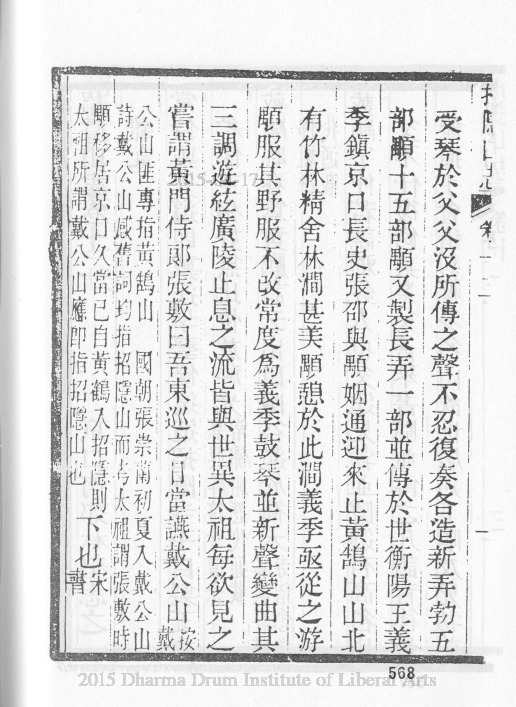 招隱山志 卷十二
受琴於父父沒所傳之聲不忍復奏各造新弄勃五
部顒十五部顒又製長弄一部並傳於世衡陽王義
季鎮京口長史張邵與顒姻通迎來止黃鵠山山北
有竹林精舍林澗甚美顒憩於此澗義季亟從之游
顒服其野服不改常度為義季鼓琴並新聲變曲其
三調遊絃廣陵止息之流皆與世異太祖每欲見之
嘗謂黃門侍郎張敷曰吾東巡之日當讌戴公山按戴
公山匪專指黃鵠山 國朝張崇蘭初夏入戴公山
詩戴公山感舊詞均指招隱山而考太祖謂張敷時
顒移居京口久當已自黃鶴入招隱則
太祖所謂戴公山應即指招隱山也
下也宋書
568
2015 Dharma Drum Institute of Liberal Arts